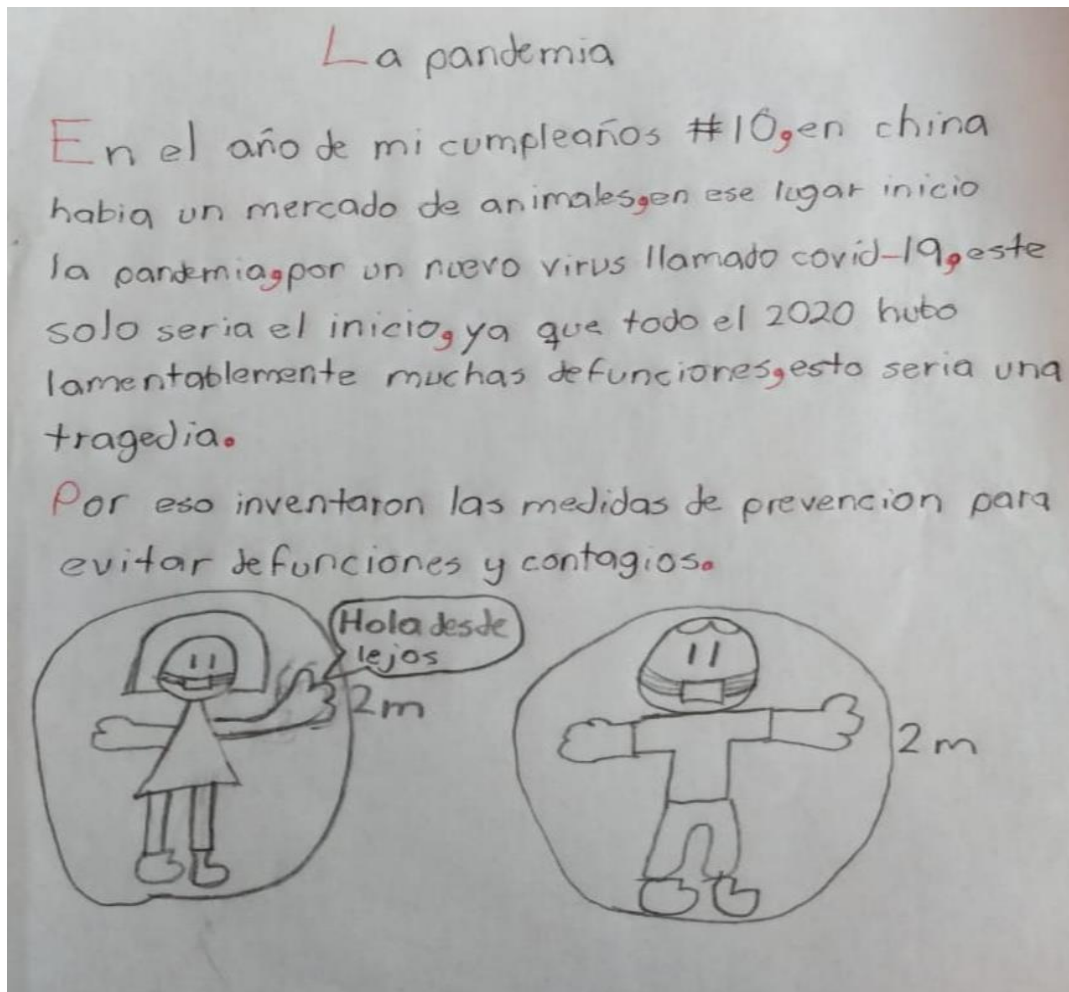 La pandemia
En el año de mi cumpleaños #10, en china
habia un mercado de animales, en ese lugar inicio
la pandemia, por un nuevo virus llamado covid-19, este
solo seria el inicio, ya que todo el 2020 hubo
lamentablemente muchas defunciones, esto seria una
tragedia.
Por eso inventaron las medidas de prevencion para
evitar defunciones y contagios.
Hola desde
lejos
2m
2m